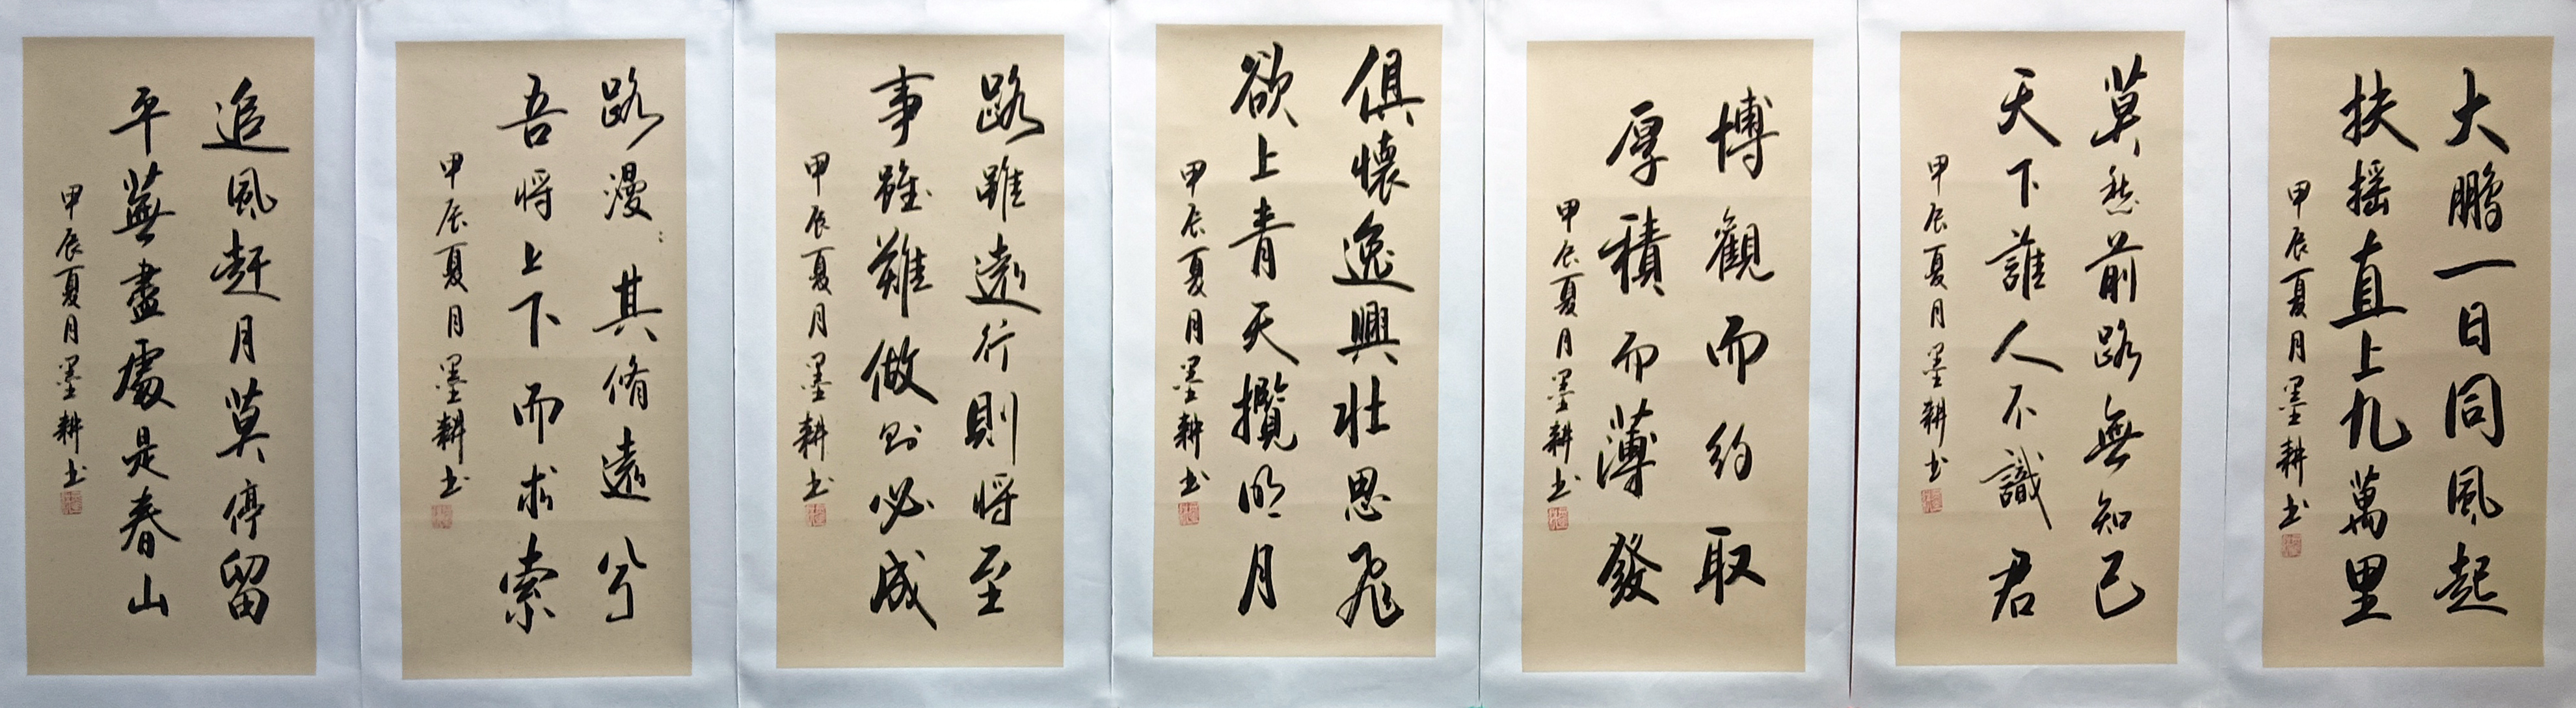 大鹏一日同風起
扶摇直上九萬里
甲辰夏月墨耕书
莫愁前路無知己
天下誰人不識君
甲辰夏月墨耕书
博觀而约取
厚積而薄發
甲辰夏月墨耕书
俱懷逸興壮思飛
欲上青天攬明月
甲辰夏月墨耕书
路雖遠行則将至
事雖難做則必成
甲辰夏月墨耕书
路漫〻其脩遠兮
吾将上下而求索
甲辰夏月墨耕书
追風赶月莫停留
平蕪盡處是春山
甲辰夏月墨耕书